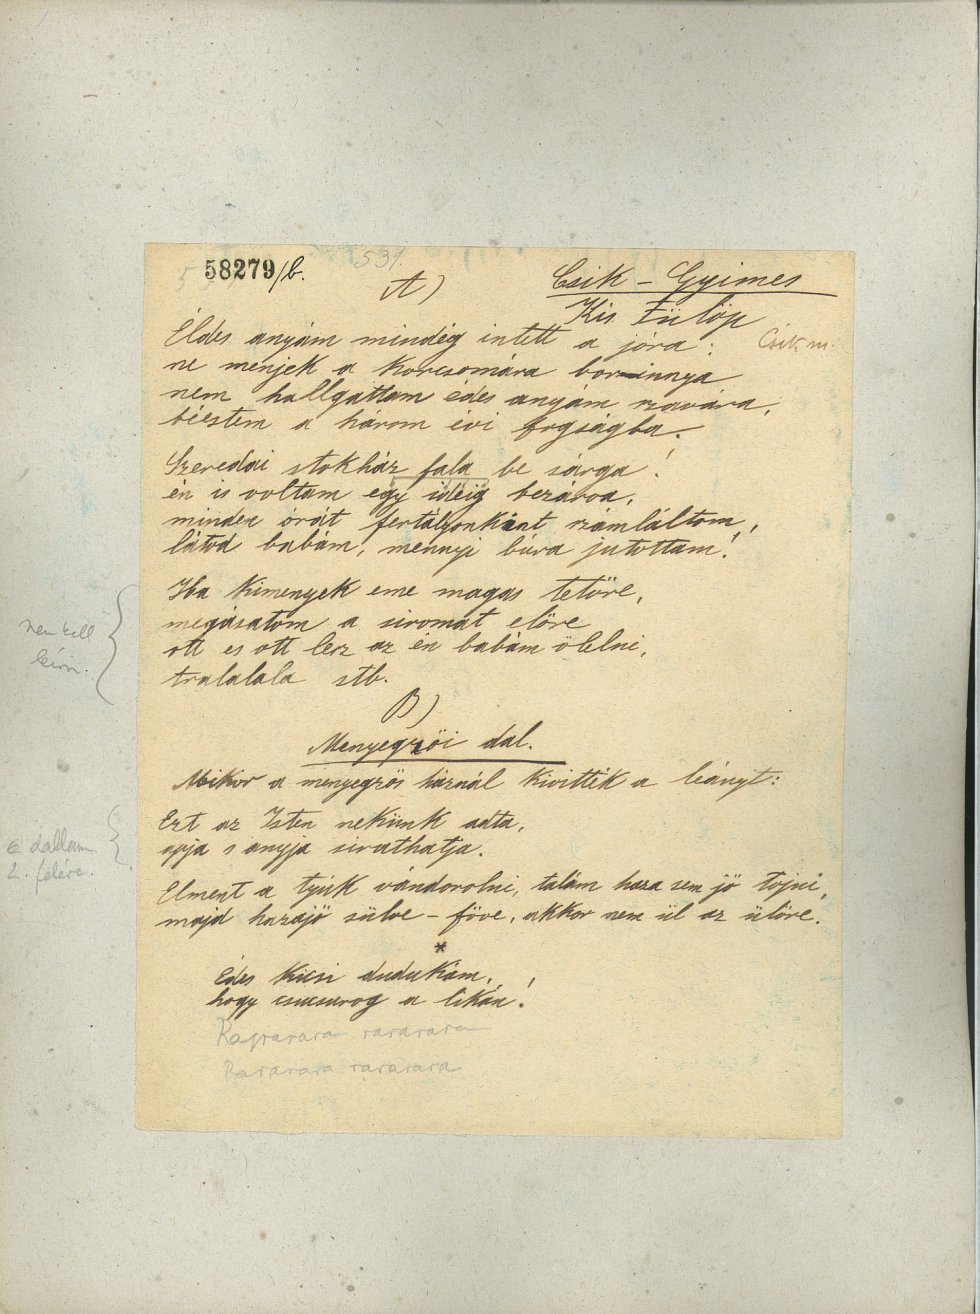 58279/b.
531.
A)
Csik - Gyimes
Kis Fülöp
Csik m.
Édes anyám mindég intett a jóra:
ne menjek a korcsomára bor innya
nem hallgattam édes anyám szavára,
béestem a három évi fogságba.
Szeredai stokház fala be sárga!
én is voltam egy ideig bezárva,
minden órát fertályonként számláltam,
látod babám, mennyi búra jutottam!
Ha kimenyek eme magas tetőre,
megásatom a siromat előre
ott es ott lesz az én babám ölelni,
tralalala stb.
nem kell
leírni.
B)
Menyegzői dal.
Mikor a menyegzős háznál kivitték a leányt:
Ezt az Isten nekünk adta,
apja s anyja sirathatja.
a dallam
2. felére.
Elment a tyúk vándorolni, talám haza sem jő tojni,
majd hazajő sülve - főve, akkor nem ül az ülőre.
*
Édes kicsi dudukám,
hogy csucsurog a likán!
Rararara rararara
Rararara rararara